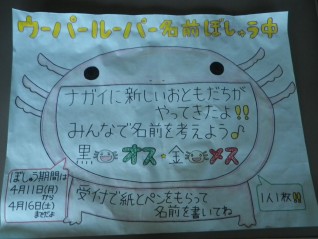 ウーパールーパー名前ぼしゅう中
ナガイに新しいおともだちが
やってきたよ!!
みんなで名前を考えよう♪
黒 オス・金 メス
ぼしゅう期間は
4月11日(月)
から
4月16日(土)
までだよ
受付で紙とペンをもらって
名前を書いてね
1人1枚!!